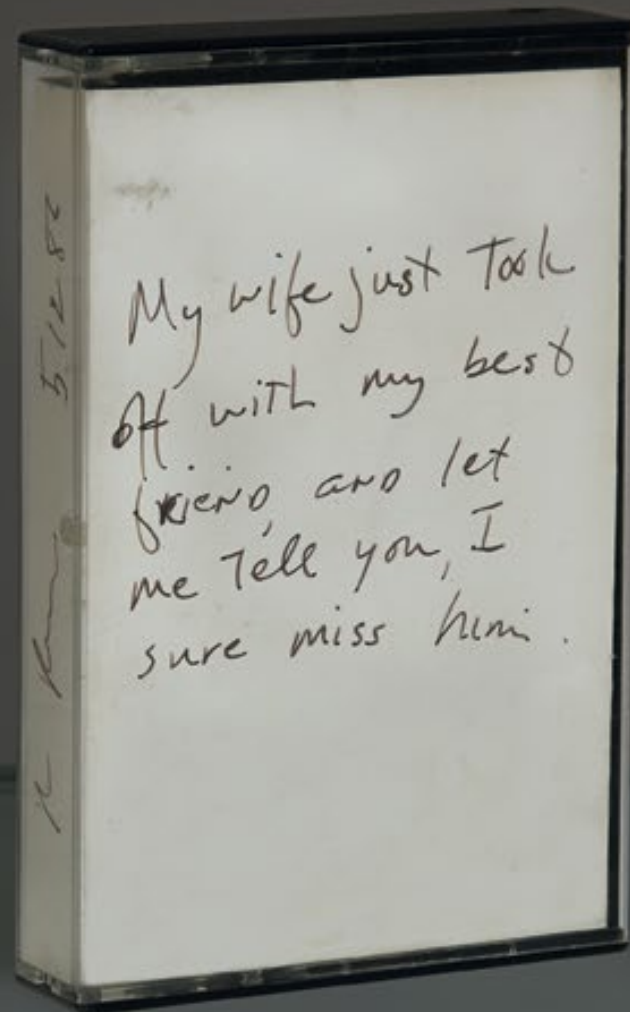 My wife just Took
off with my best
friend, and let
me Tell you, I
sure miss him.
5 12 86